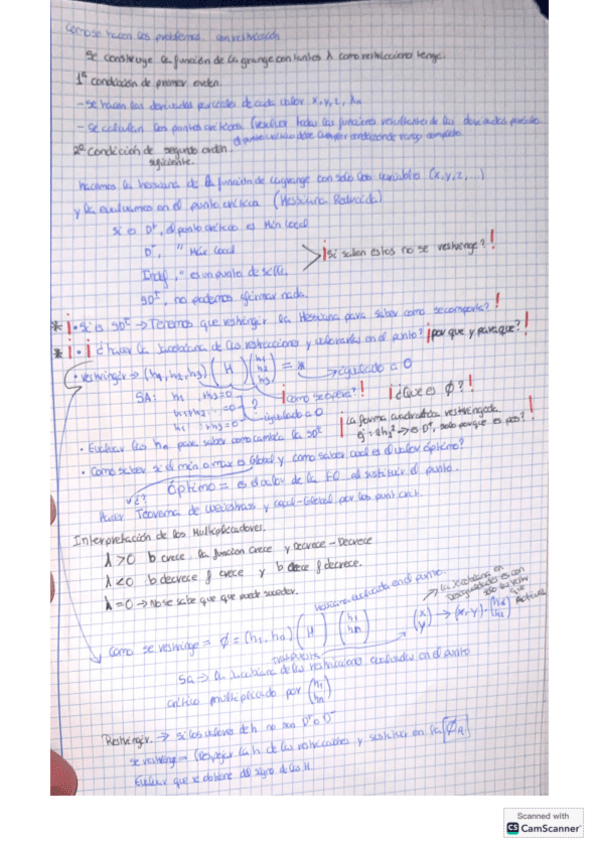 Como se hacen los problemas con restricción
Se construye la función de Lagrange con tantos λ como restricciones tenga.
1ª condición de primer orden.
- Se hacen las derivadas parciales de cada valor x, y, z, λn
- Se calculan los puntos críticos (resolver todas las funciones resultantes de las derivadas parciales.
el punto crítico debe cumplir condición de rango completo.
2ª Condición de segundo orden.
suficiente.
hacemos la hessiana de la función de Lagrange con solo las variables (x, y, z, ...)
y la evaluamos en el punto crítico (Hessiana Reducida)
Si es D+, el punto crítico es Mín local
D-, " Máx local
Indef, " es un punto de silla.
SD±, no podemos afirmar nada.
¡Si salen estos no se restringe?!
* ¡• Si es SD± → Tenemos que restringir la Hessiana para saber como se comporta?!
* ¡• ¡ hacer la Jacobiana de las restricciones y valorarlas en el punto? ¡por que y para que?!
• restringir → (h1, h2, h3) (H) (h1 h2 h3) = * → igualado a 0
SA: h1 + h3 = 0
?
igualado a 0
¡como se opera?!
¡¿Que es Ø?!
• Evaluar los hn para saber como cambia la SD±
¡La forma cuadrática restringida
es D+, solo porque es pos?!
• Como saber si el mín o max es Global y como saber cual es el valor óptimo?
Óptimo = es el valor de la FO al sustituir el punto.
¿?
Hacer Teorema de Weierstrass y Local-Global por los punt crít.
Interpretación de los Multiplicadores.
λ > 0 b crece la función crece y Decrece - Decrece
λ < 0 b decrece f crece y b crece f decrece.
λ = 0 → No se sabe que puede suceder.
Hessiana evaluada en el punto.
Como se restringe = Ø = (h1, hn) (H) (h1 hn)
(x y) → (x, y) =
La Jacobiana en
desigualdades es con
Activas
traspuesta
SA → La Jacobiana de las restricciones evaluadas en el punto
crítico multiplicado por (h1 hn)
Restringir. → si los valores de h no son D+ o D-
se restringe → (Despejar la h de las restricciones y sustituir en la [ØR]
Evaluar que se obtiene del signo de las H.